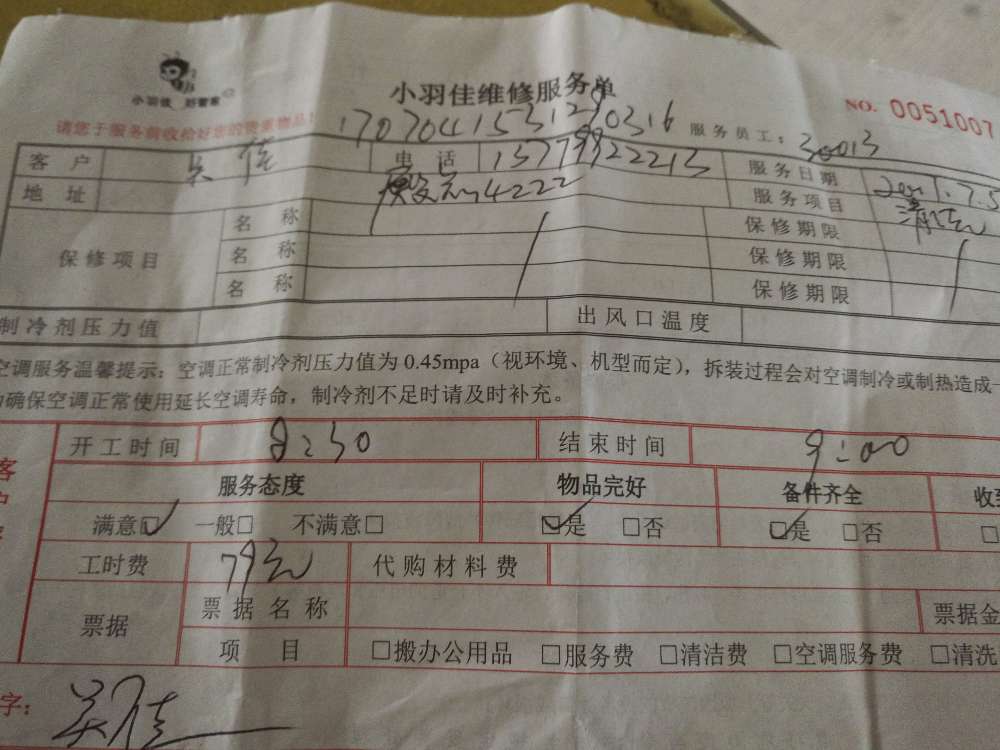 小羽佳 好管家
小羽佳维修服务单
NO. 0051007
请您于服务前收给好您的贵重物品!
1707041531290316
服务员工: 30013
客户 吴佳 电话 13799922213 服务日期 7.5
地址 4222 服务项目 清洗
保修项目 名称 保修期限
名称 保修期限
名称 保修期限
制冷剂压力值 出风口温度
空调服务温馨提示:空调正常制冷剂压力值为 0.45mpa(视环境、机型而定),拆装过程会对空调制冷或制热造成一
为确保空调正常使用延长空调寿命,制冷剂不足时请及时补充。
开工时间 8:30 结束时间 9:00
服务态度 物品完好 备件齐全 收
满意☑ 一般□ 不满意□ ☑是 □否 ☑是 □否 □
工时费 79元 代购材料费
票据 票据名称 票据金
项目 □搬办公用品 □服务费 □清洁费 □空调服务费 □清洗
字: 吴佳